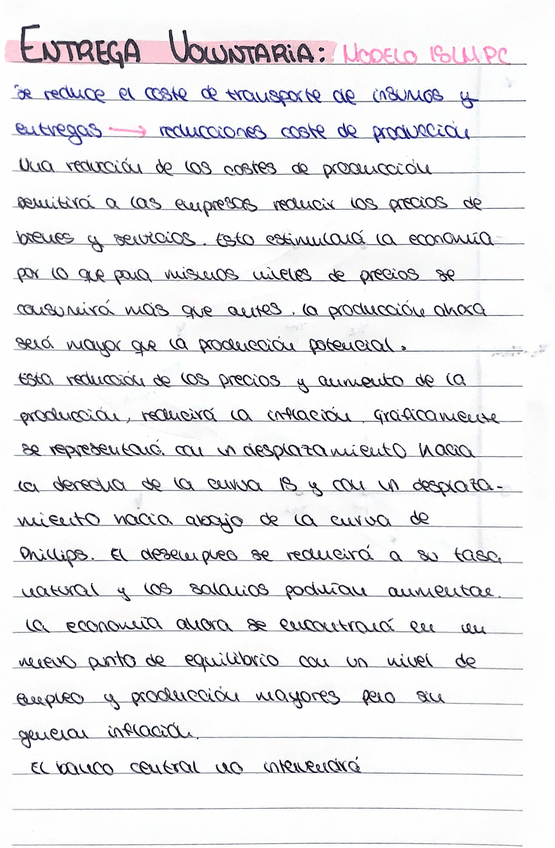 ENTREGA VOLUNTARIA: MODELO ISLM PC
Se reduce el coste de transporte de insumos y
entregas → reducciones coste de producción
Una reducción de los costes de producción
permitirá a las empresas reducir los precios de
bienes y servicios. Esto estimulará la economía
por lo que para mismos niveles de precios se
consumirá más que antes. La producción ahora
será mayor que la producción potencial.
Esta reducción de los precios y aumento de la
producción, reducirá la inflación. Gráficamente
se representará con un desplazamiento hacia
la derecha de la curva IS y con un desplaza-
miento hacia abajo de la curva de
Phillips. El desempleo se reducirá a su tasa
natural y los salarios podrían aumentar.
La economía ahora se encontrará en un
nuevo punto de equilibrio con un nivel de
empleo y producción mayores pero sin
generar inflación.
El banco central no intervendrá